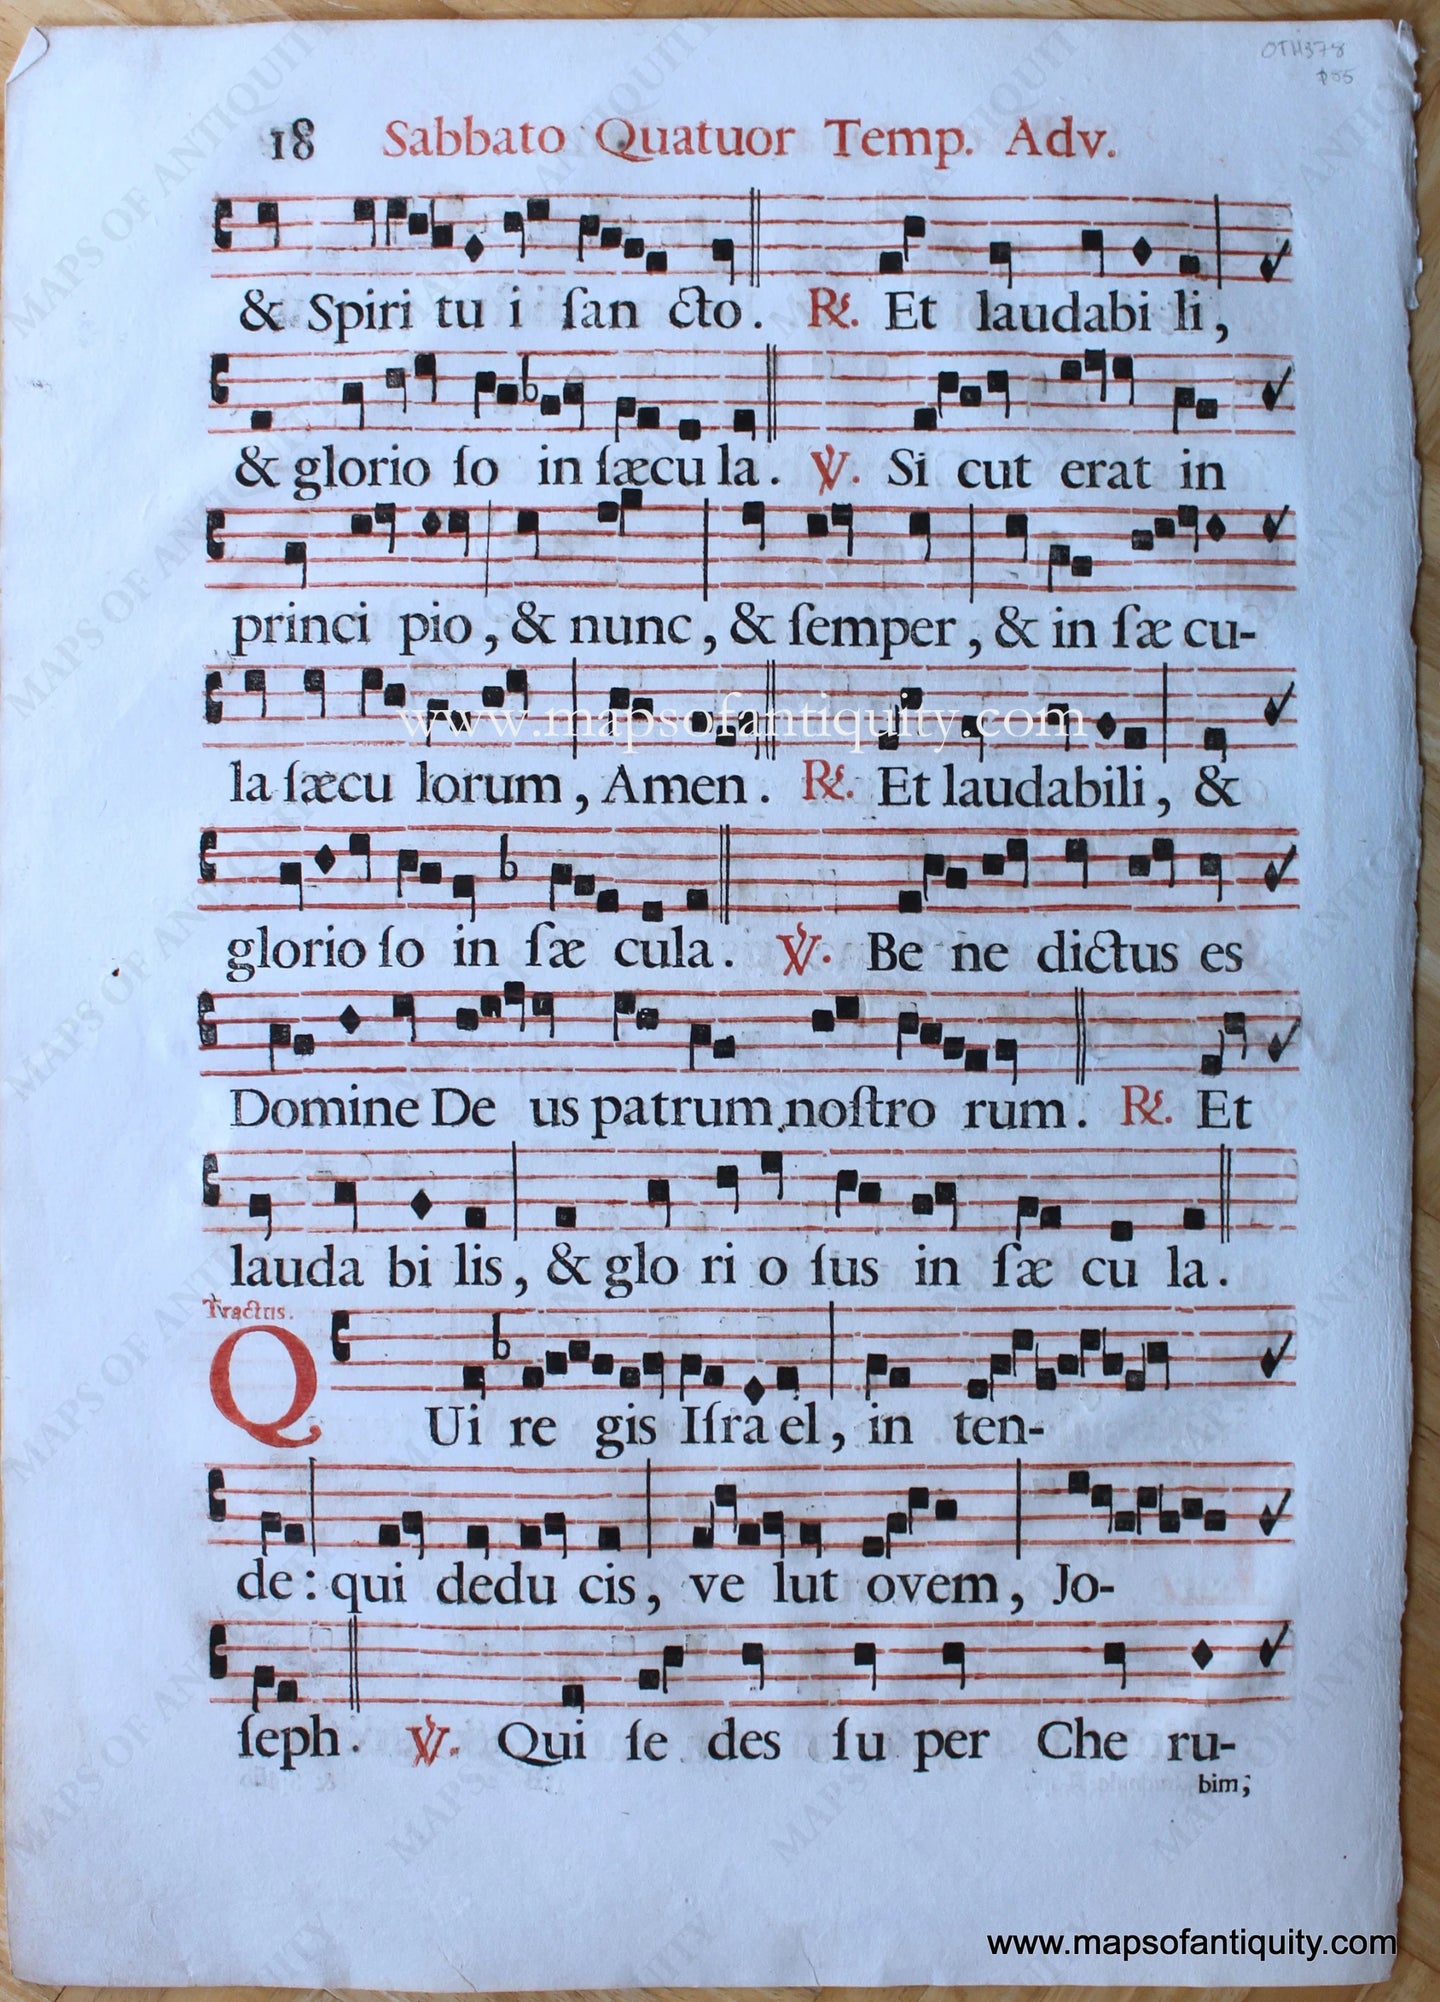 OTH378
$85
18 Sabbato Quatuor Temp. Adv.
& Spiri tu i ſan cto. ℟. Et laudabi li,
& glorio ſo in ſæcu la. ℣. Si cut erat in
princi pio, & nunc, & ſemper, & in ſæ cu-
la ſæcu lorum, Amen. ℟. Et laudabili, &
www.mapsofantiquity.com
glorio ſo in ſæ cula. ℣. Be ne dictus es
Domine De us patrum noſtro rum. ℟. Et
lauda bi lis, & glo ri o ſus in ſæ cu la.
Tractus.
QUi re gis Iſra el, in ten-
de: qui dedu cis, ve lut ovem, Jo-
ſeph. ℣. Qui ſe des ſu per Che ru-
bim;
www.mapsofantiquity.com